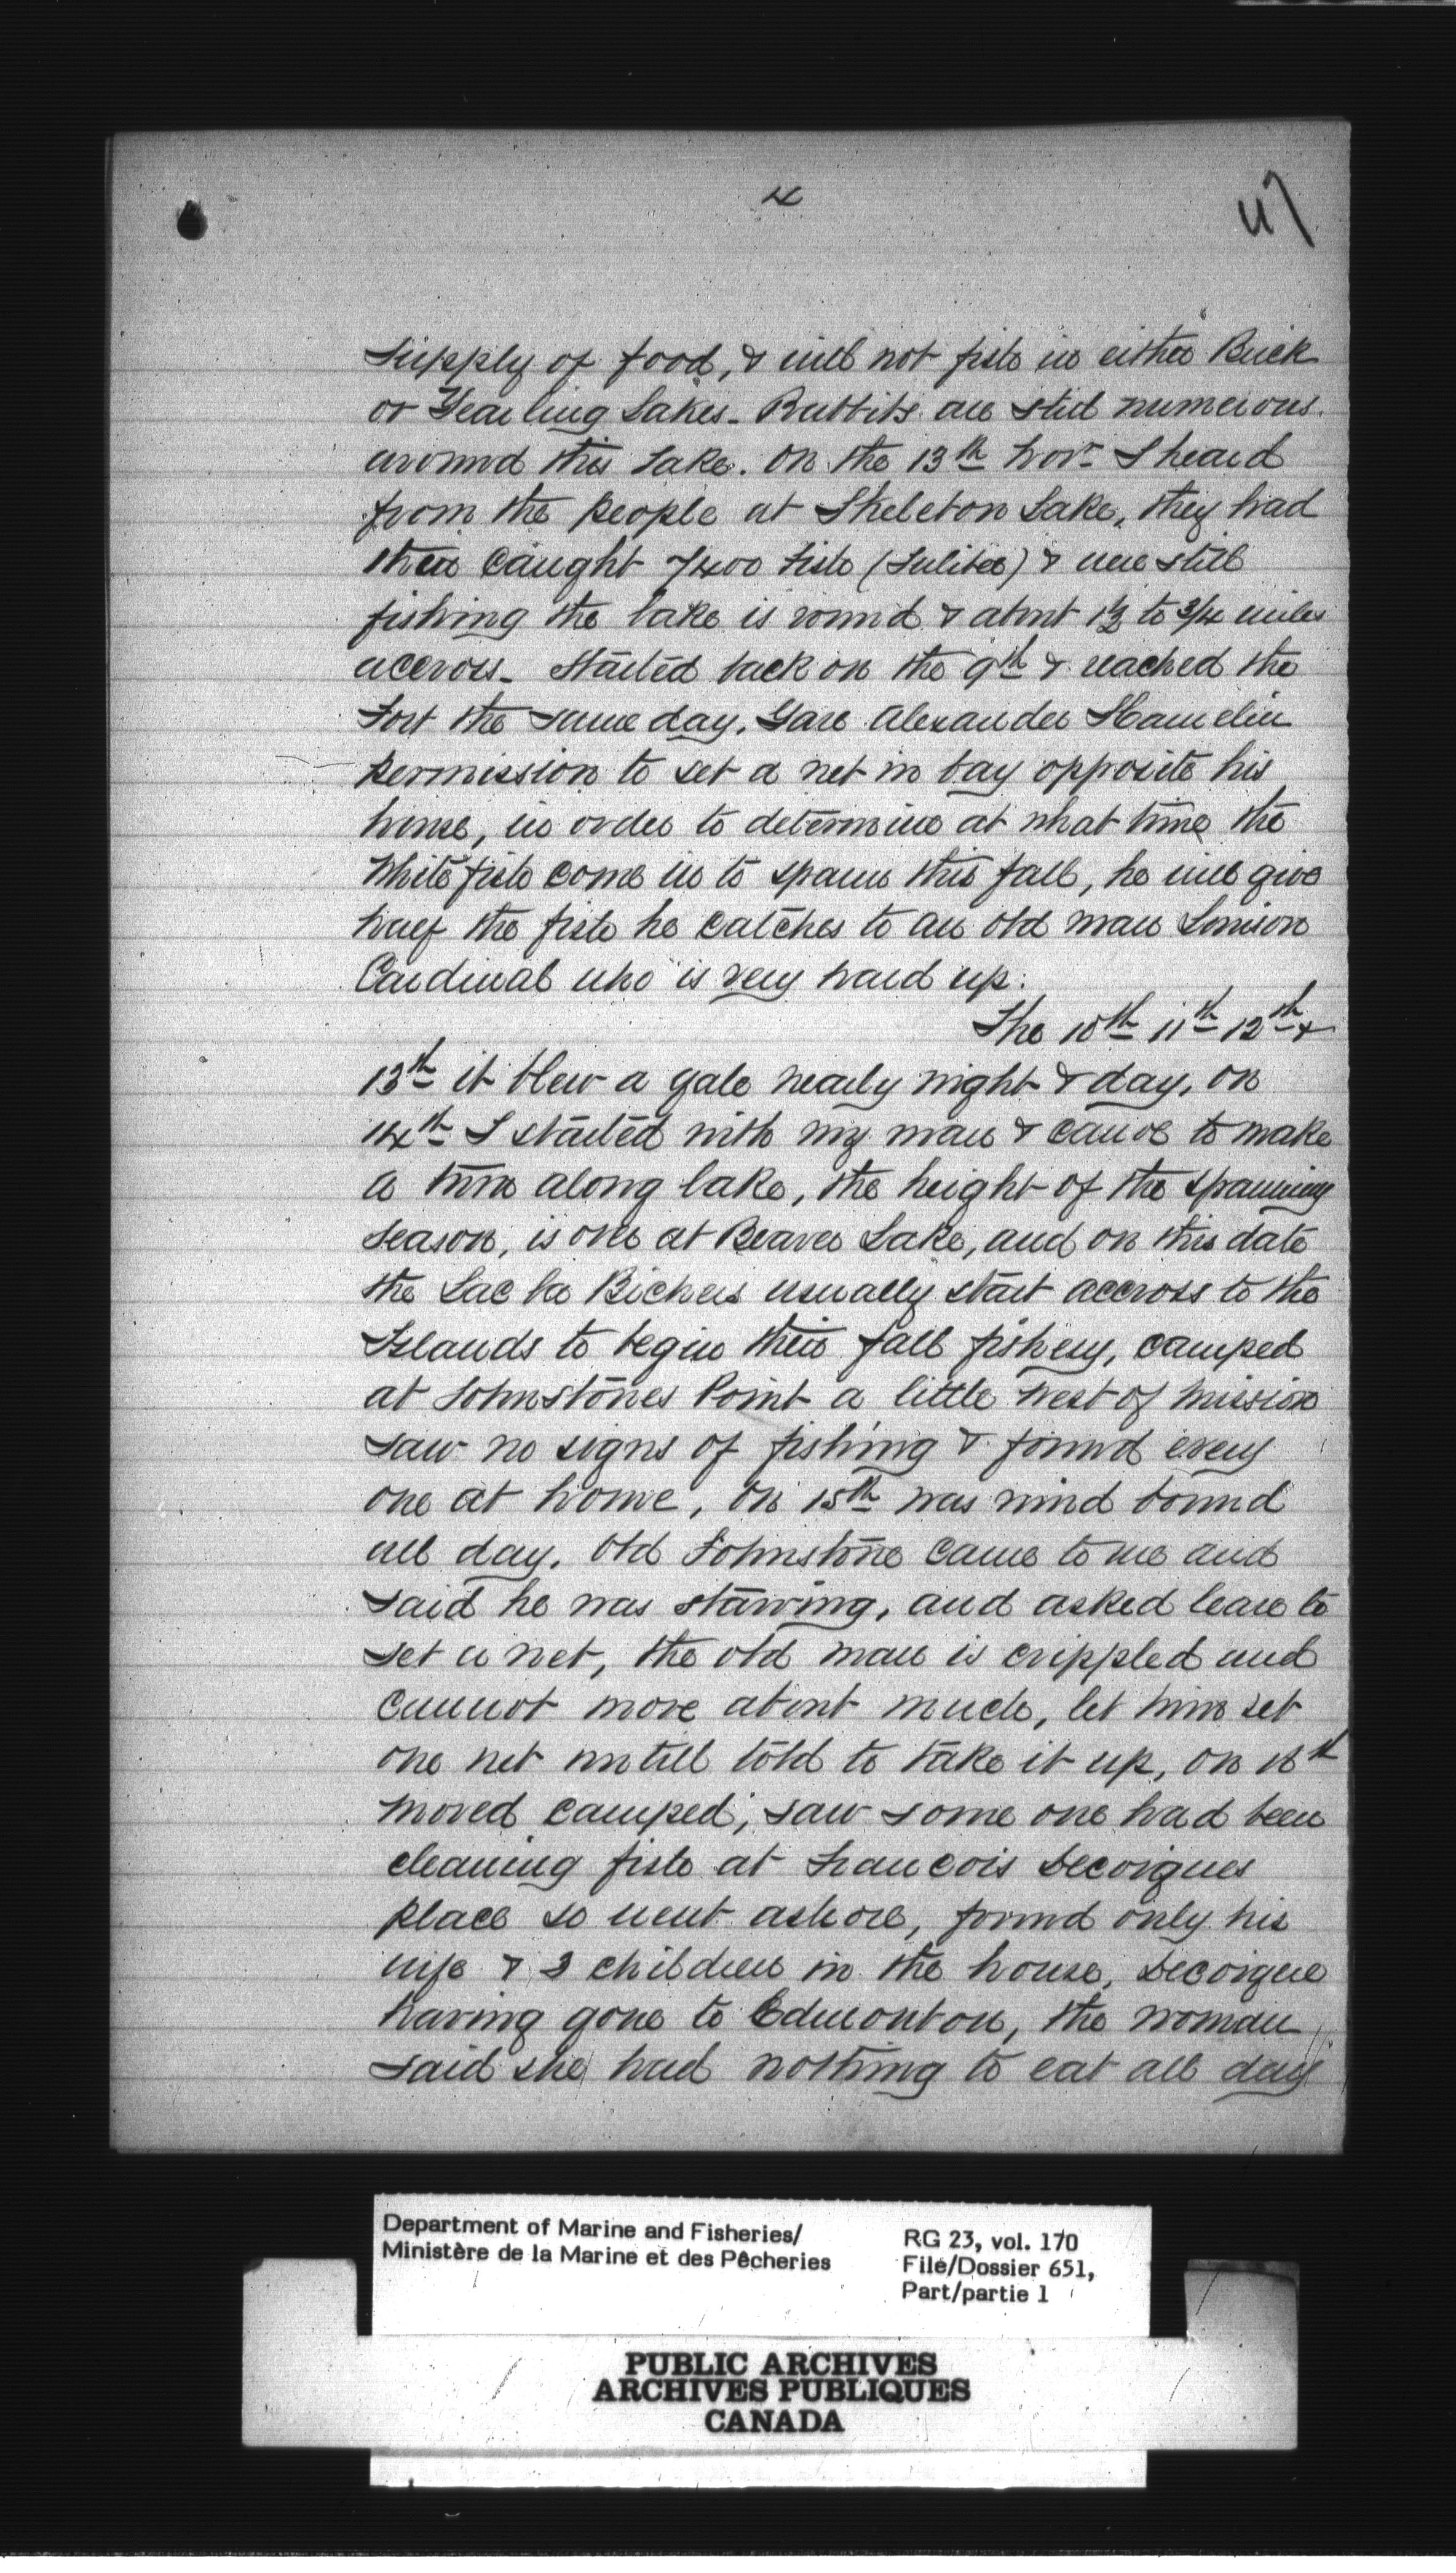 4
47
Supply of food, & will not fish in either Buck
or Yearling Lakes - Rabbits are still numerous
around this Lake. On the 13th Novr I heard
from the people at Skeleton Lake, they had
then caught 7400 Fish (Tulibee) & were still
fishing the lake is round & about 1½ to ¾ miles
accross - Started back on the 9th & reached the
Fort the same day. Gave Alexander Hamelin
permission to set a net in bay opposite his
house, in order to determine at what time the
Whitefish come in to spawn this fall, he will give
half the fish he catches to an old man
Cardinal who is very hard up.
The 10th 11th 12th &
13th it blew a gale nearly night & day, on
14th I started with my man & canoe to make
a turn along lake, the height of the spawning
season, is over at Beaver Lake, and on this date
the Lac la Bichers usually start accross to the
Islands to begin their fall fishery, camped
at Johnstones Point a little west of Mission
saw no signs of fishing & found every
one at home, On 15th was wind bound
all day. Old Johnstone came to me and
said he was starving, and asked leave to
set a net, the old man is crippled and
cannot move about much, let him set
one net untill told to take it up, on 16th
moved camped, saw some one had been
cleaning fish at Francois Decoignes
place so went ashore, found only his
wife & 3 children in the house, Decoigne
having gone to Edmonton, the woman
said she had nothing to eat all day
Department of Marine and Fisheries/
Ministère de la Marine et des Pêcheries
RG 23, vol. 170
File/Dossier 651,
Part/partie 1
PUBLIC ARCHIVES
ARCHIVES PUBLIQUES
CANADA